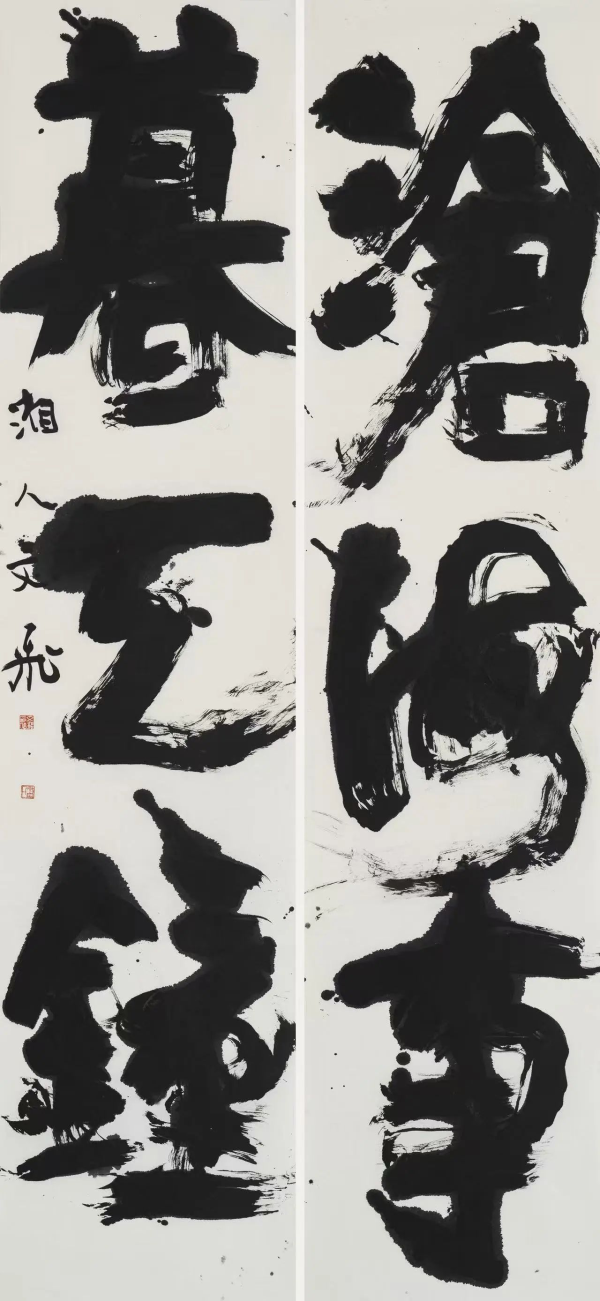 滄海事
暮天鐘
湘人文飛